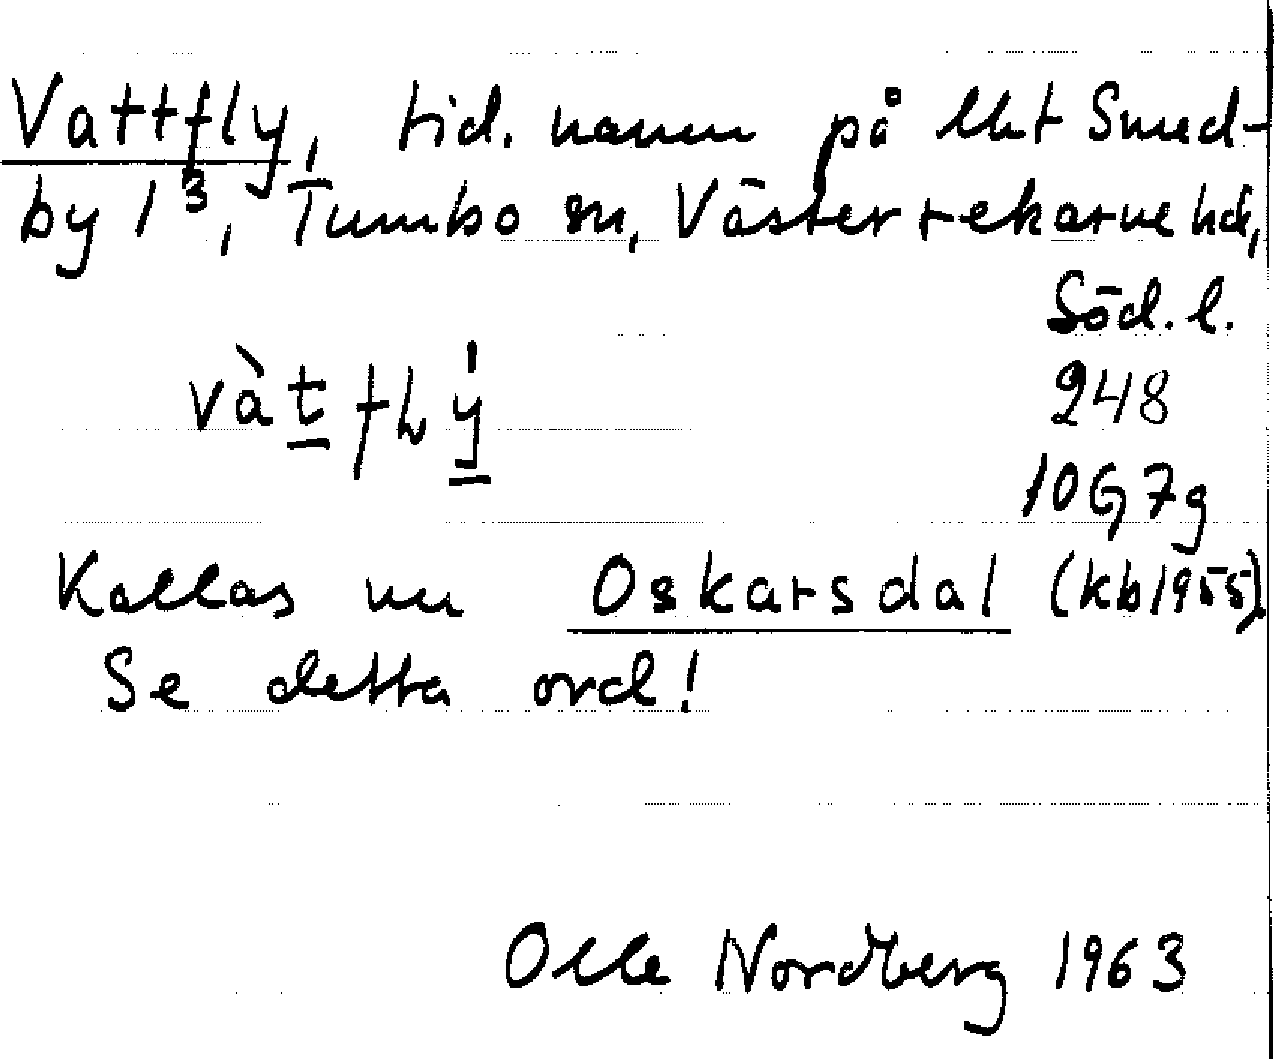 Vattfly, tid. namn på lht Smed-
by 1³, Tumbo sn, Västerrekarne hd,
Söd. l.
248
vàt flý
10G7g
Kallas nu Oskarsdal (kb 1955)
Se detta ord!
Olle Nordberg 1963